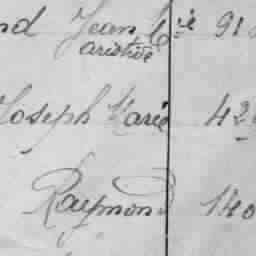 nd Jean Cie 91
aristide
Joseph Marie 42
Raymond 140